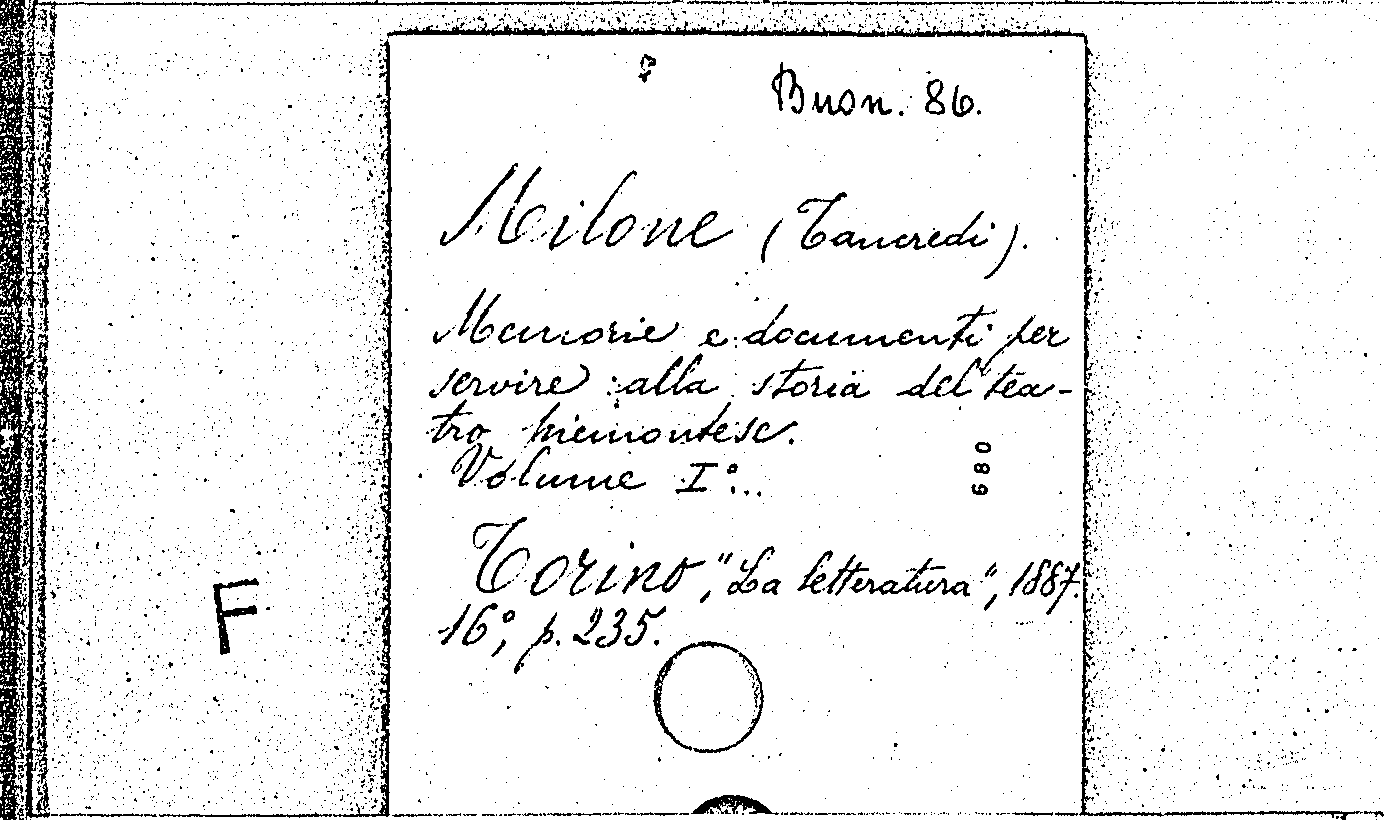 Buon. 86.
Milone (Tancredi).
Memorie e documenti per
servire alla storia del tea-
tro piemontese.
Volume I°...
680
Torino, "La letteratura", 1887.
16°, p. 235.
F